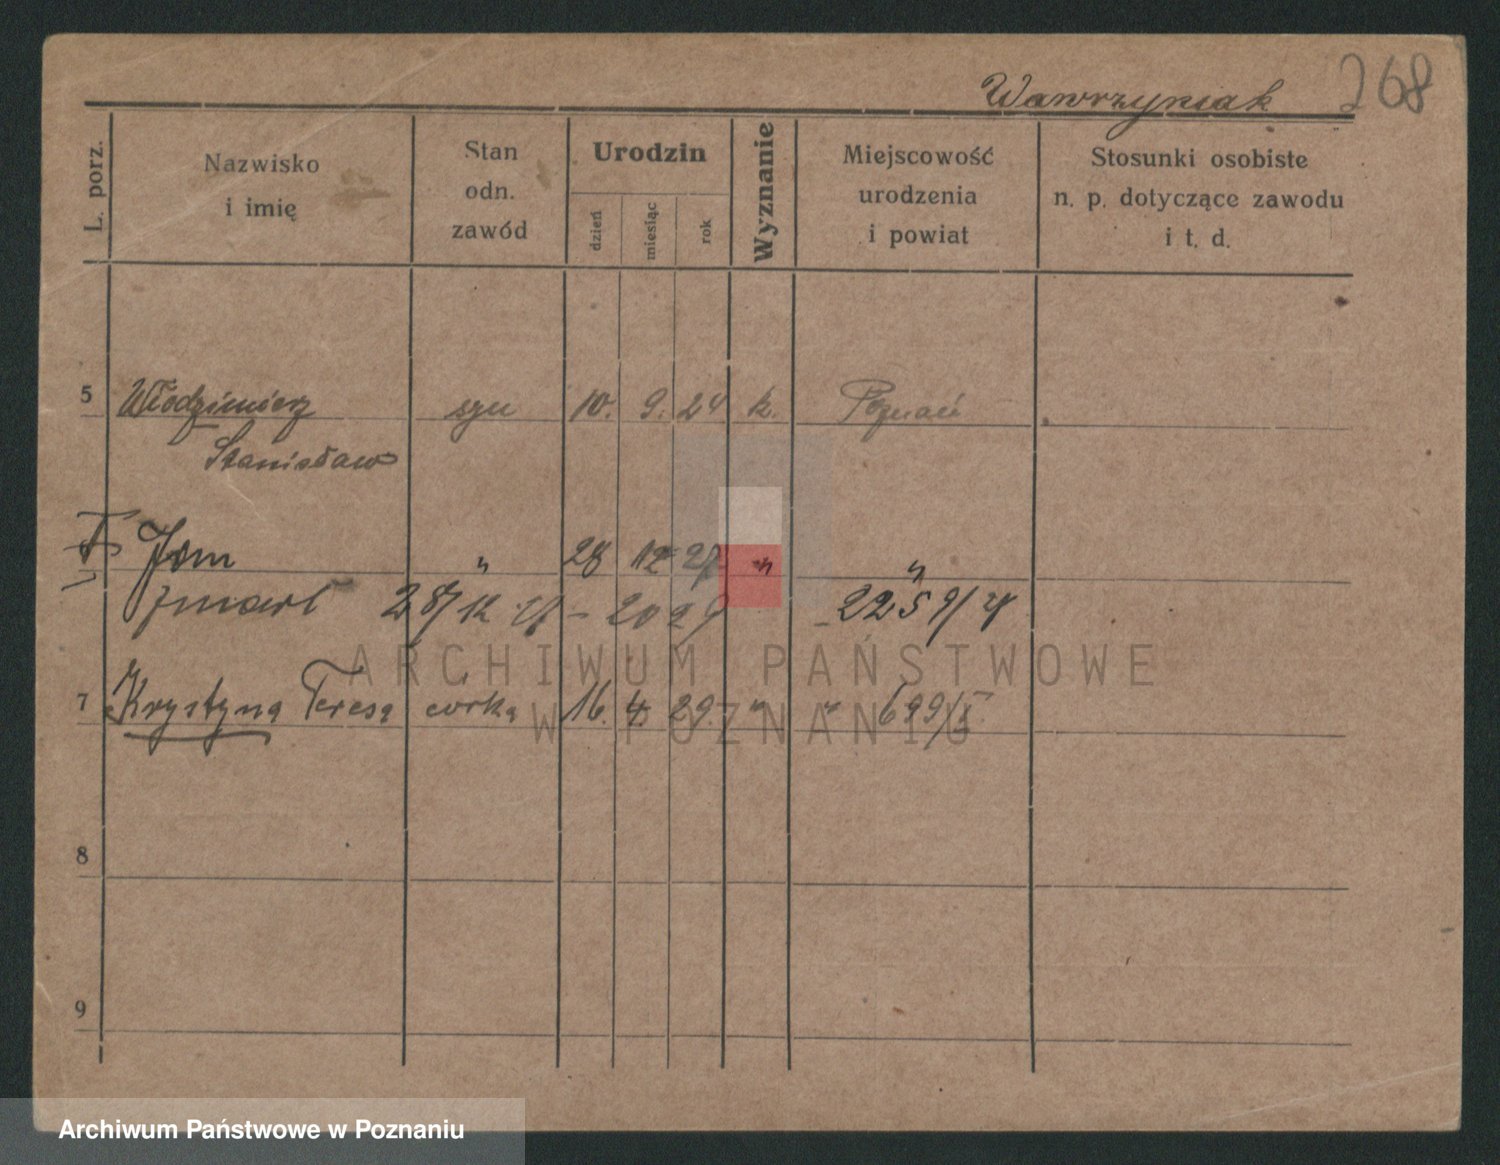 Wawrzyniak 268
L. porz.
Nazwisko i imię
Stan odn. zawód
Urodzin
dzień miesiąc rok
Wyznanie
Miejscowość urodzenia i powiat
Stosunki osobiste n. p. dotyczące zawodu i t. d.
5 Włodzimierz syn 10. 9. 24 k. Poznań
Stanisław
Jan " 28 12 27 " "
zmarł 28/12 27 - 2029 - 2259/27
7 Krystyna Teresa córka 16. 4. 29. " " 699/I.
8
9
ARCHIWUM PAŃSTWOWE
W POZNANIU
Archiwum Państwowe w Poznaniu